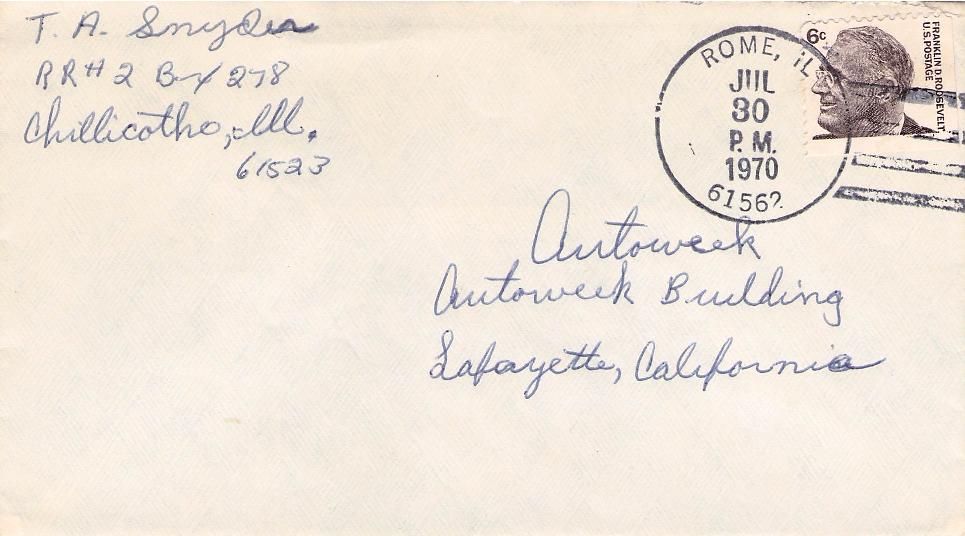 T. A. Snyder
RR# 2 Box 278
Chillicothe, Ill.
61523
ROME, IL
JUL
30
P. M.
1970
61562
6c
FRANKLIN D. ROOSEVELT
U.S. POSTAGE
Autoweek
Autoweek Building
Lafayette, California